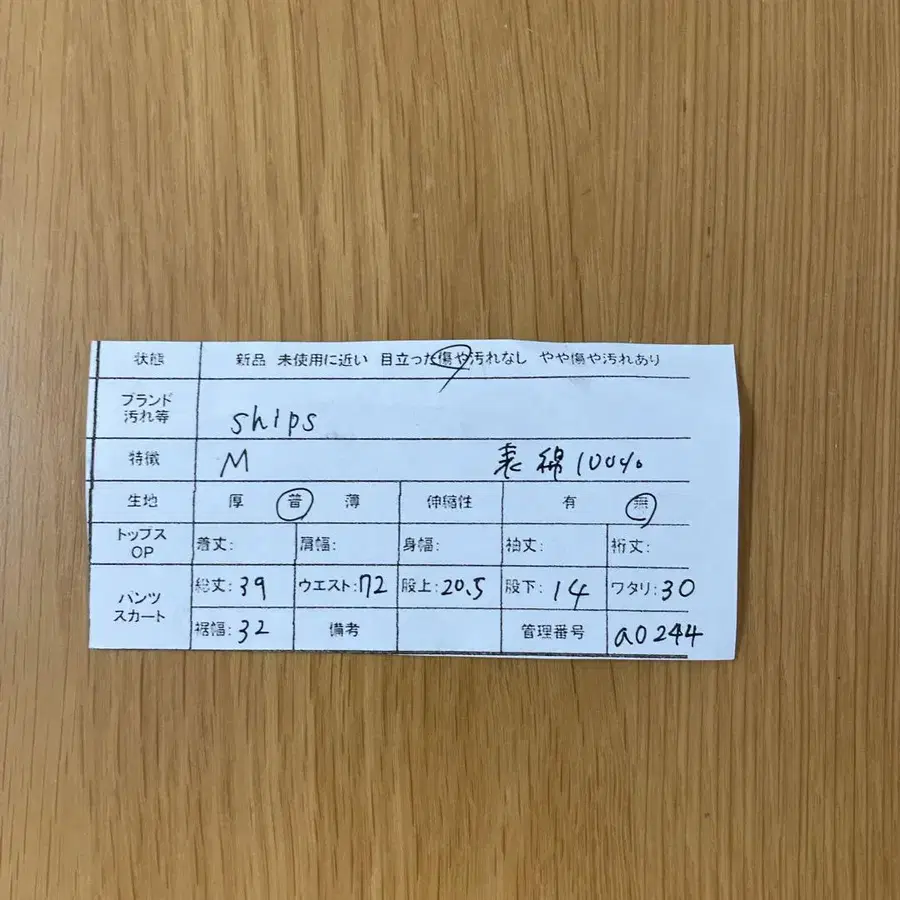 状態 新品 未使用に近い 目立った傷や汚れなし やや傷や汚れあり
ブランド
汚れ等
ships
特徴 M 表 綿100%
生地 厚 普 薄 伸縮性 有 無
トップス
OP
着丈: 肩幅: 身幅: 袖丈: 裄丈:
パンツ
スカート
総丈:39 ウエスト:72 股上:20.5 股下:14 ワタリ:30
裾幅:32 備考 管理番号 a0244